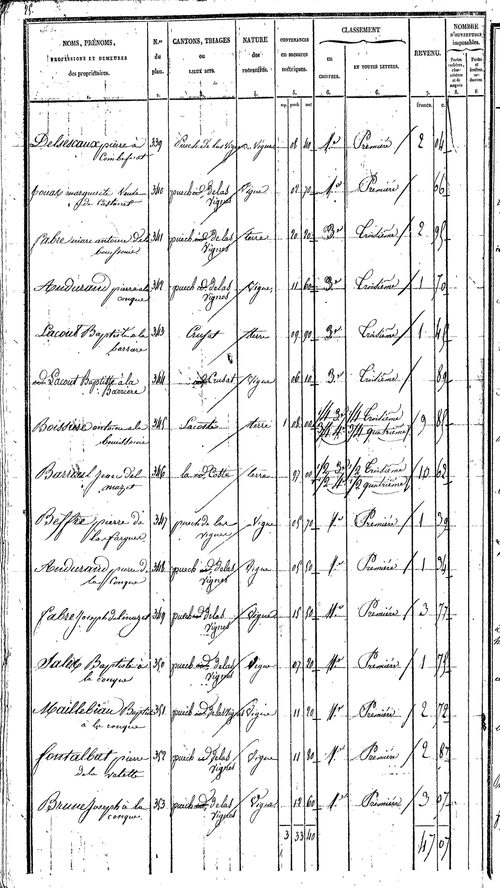 NOMS, PRÉNOMS, PROFESSIONS ET DEMEURES des propriétaires. N.os du plan. CANTONS, TRIAGES ou LIEUX DITS. NATURE des PROPRIÉTÉS. CONTENANCES en mesures métriques. CLASSEMENT EN CHIFFRES. EN TOUTES LETTRES. REVENU. NOMBRE D'OUVERTURES imposables.
1. 2. 3. 4. 5. 6. 6. 7. 8. 8.
francs. c.
pierre à 339 Puech de las Vignes Vigne 08 40 1re Première 2 04
Marguerite Veuve 340 puech id de las Vignes Vigne 02 70 1re Première 66
de Castanet
fabre pierre antoine de la 341 puech id de las Vignes terre 20 20 3e Troisième 2 95
Audurand pierre à la conque 342 puech id. de las Vignes Vigne 11 60 3e Troisième 1 70
Lacout Baptiste à la barriere 343 Crusat terre 09 90 3e Troisième 1 45
id Lacout Baptiste à la Barriere 344 id Crusat Vigne 06 10 3e Troisième 89
Boissiere antoine à la 345 Lacoste terre 1 08 00 1/4 3e 1/4 Troisième 9 85
3/4 4e 3/4 quatrième
Barreau jean del mazet 346 la id. Coste terre 97 00 1/2 3e 1/2 Troisième 10 62
1/2 4e 1/2 quatrième
Beffre pierre de la fargue 347 puech de las vignes Vigne 05 70 1re Première 1 39
Audurand pierre de la Conque 348 puech id. de las Vignes Vigne 05 50 1re Première 1 34
fabre joseph del mazet 349 puech id de las Vignes Vigne 15 50 1re Première 3 77
Baptiste à la conque 350 puech id. de las Vignes Vigne 07 20 1re Première 1 75
Maillebiau Baptiste à la conque 351 puech id. de las Vignes Vigne 11 20 1re Première 2 72
fontalbat pierre de la Valette 352 puech id de las Vignes Vigne 11 80 1re Première 2 87
Brune joseph à la conque 353 puech id. de las Vignes Vigne 12 60 1re Première 3 07
3 33 40 47 07